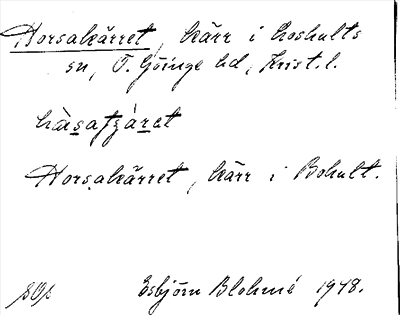 Horsakärret, kärr i Loshults
sn, Ö. Göinge hd, Krist. l.
hàsatʃàret
Horsakärret, kärr i Bohult.
Esbjörn Blohmé 1948.